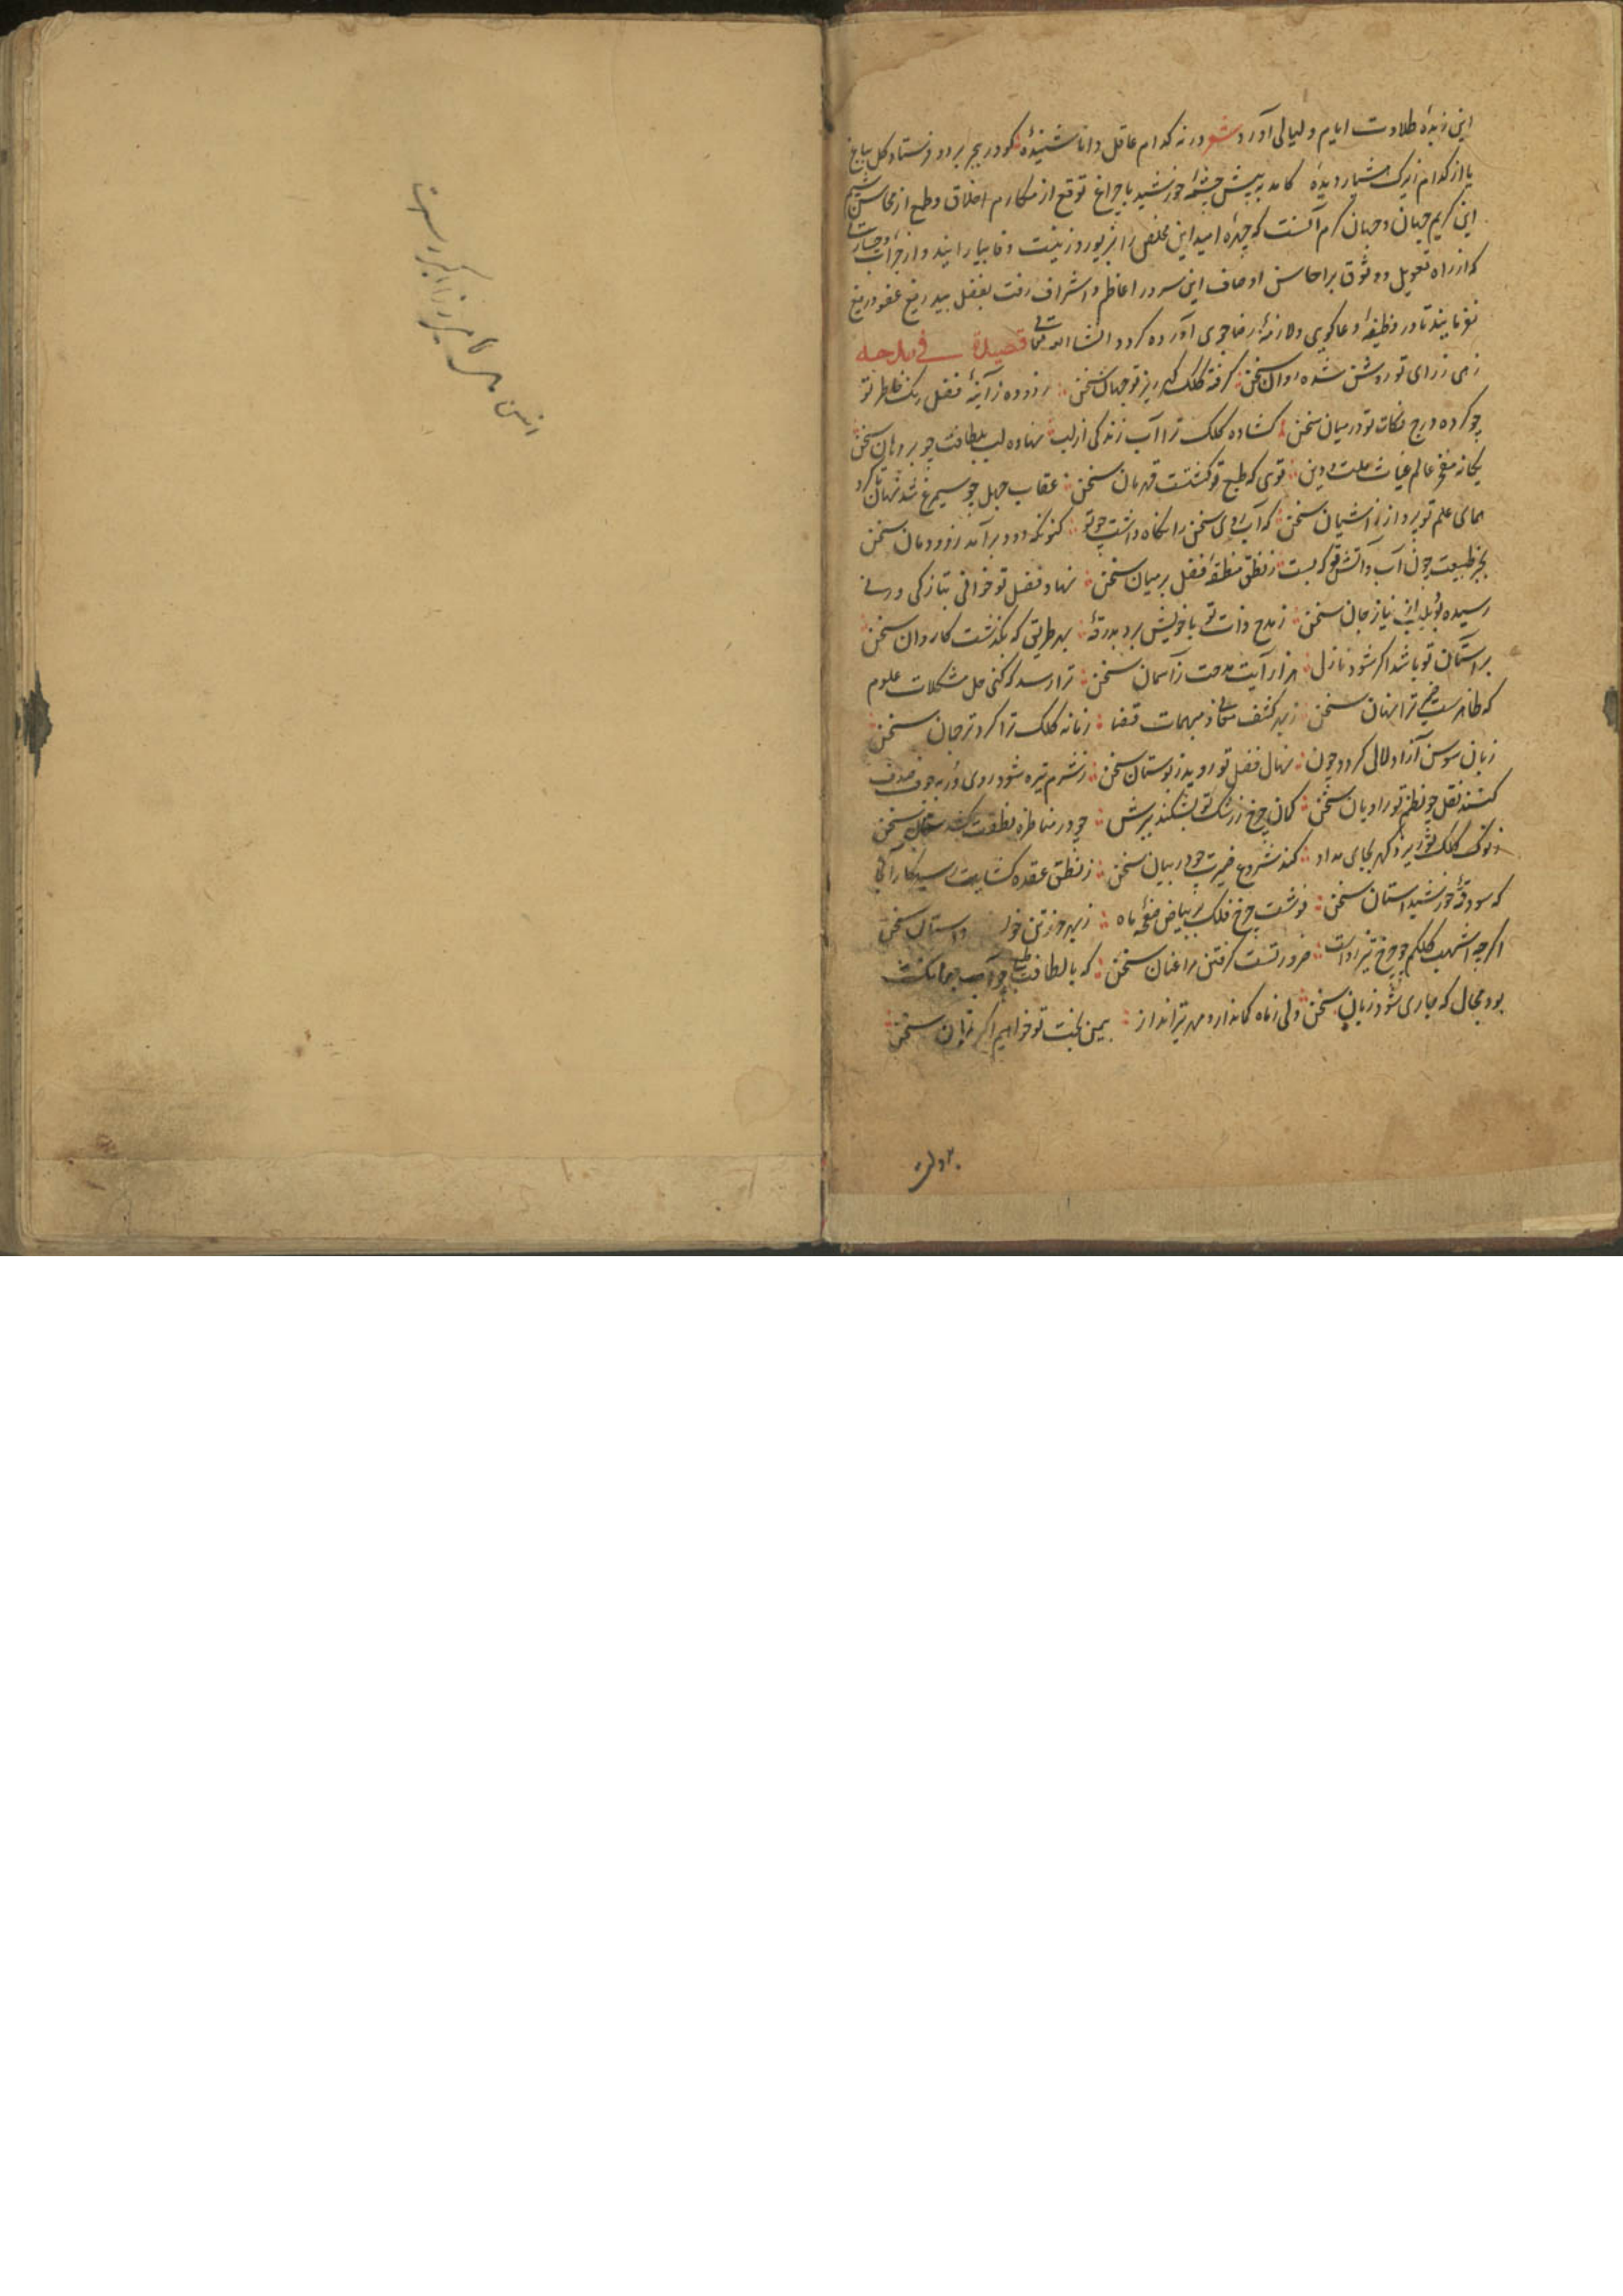 این زبدهٔ طلاوت ایام و لیالی آورد شعر ورنه کدام عاقل دانا شنیدهٔ کو در ببحر برد و فرستاد گل بباغ
یا از کدام زیرک هشیار دیدهٔ کامد به پیش چشمهٔ خورشید با چراغ توقع از مکارم اخلاق و طمع از محاسن شیم
این کریم جهان و جهان کرم آنست که چهرهٔ امید این مخلص را بزیور و زینت وفا بیارایند و از جرات و جسارت
که از راه تعویل و وثوق بر احاسن اوصاف این سرور اعاظم و اشراف رفت بفضل بیدریغ عفو دریغ
نفرمایند تا در وظیفهٔ دعاکویی و لازمهٔ رضاجوی آورده کردد انشاالله تعالی قصیدة فی مدحه
زهی ز رای تو روشن شده روان سخن گرفته کلک گهرریز تو جهان سخن زدوده ز آینهٔ فضل رنک خاطر تو
چو کرده درج نکات تو در میان سخن کشاده کلک ترا آب زندکی از لب نهاده لب بلطافت چو بر دهان سخن
یکانه مفخر عالم غیاث ملت و دین توی که طبع تو کشتست قهرمان سخن عقاب جهل چو سیمرغ شد نهان تا کرد
همای علم تو پرواز ز آشیان سخن که آب روی سخن را نکاه داشت چو تو کنونکه دود برآمد ز دودمان سخن
بجز طبیعت چون آب و آتش تو که بست ز نطق منطقهٔ فضل بر میان سخن نهاد فضل تو خوانی بتازکی و رسی
رسیده بوی نیاز جان سخن ز مدح ذات تو با خویش برد بدرقهٔ بهر طریق که بکذشت کاروان سخن
بر آستان تو باشد اکر شود نازل هزار آیت مدحت ز آسمان سخن ترا رسد که کنی حل مشکلات علوم
که ظاهرست ترا نهان سخن ز بهر کشف معانی ز مبهمات قضا زمانه کلک ترا کرد ترجمان سخن
زبان سوسن آزاد لالی کردد چون نهال فضل تو روید ز بوستان سخن ز شرم تیره شود روی در به جوف صدف
کنند نقل چو نظم تو راویان سخن کمان چرخ ز رشک تو بشکند تیرش چو در مناظره نطقت کشد کمان سخن
ز نوک کلک تو ریزد کهر بجای مداد کند شروع ضمیرت چو در بیان سخن ز نطق عقده کشایت رسید کار آنجا
که سود فرق خورشید آستان سخن نوشت چرخ فلک بر بیاض صفحهٔ ماه ز بهر حرز تن خود داستان سخن
اکرچه اشهب کلکم چو چرخ تیزروست ضرورتست کرفتن مرا عنان سخن که با لطافت طبع چو آب
بود مجال که جاری شود زبان سخن ولی ز ماه کماندار و مهر تیرانداز بیمن بخت تو خواهیم اکر امان سخن